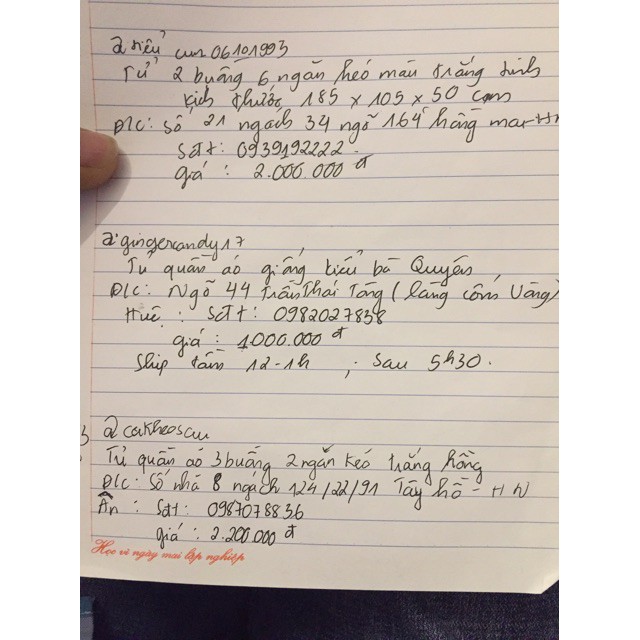 a siêu cun 06101993
Tủ 2 buồng 6 ngăn kéo màu trắng tinh
kích thước 185 x 105 x 50 cm
Đ/c: Số 21 ngách 34 ngõ 164 hồng mai - H
Sđt: 0939192222
giá : 2.000.000 đ
a gingercandy17
Tủ quần áo giống kiểu bà Quyên
Đ/c: Ngõ 44 Trần Thái Tông (làng cốm Vòng)
Huê : Sđt: 0982027838
giá : 1000.000 đ
Ship tầm 12-1h ; sau 5h30.
3 a cakheosau
Tủ quần áo 3 buồng 2 ngăn kéo trắng hồng
Đ/c: Số nhà 8 ngách 124/22/91 Tây hồ - HN
Ân : Sđt: 0987078836
giá : 2.200.000 đ
Học vì ngày mai lập nghiệp